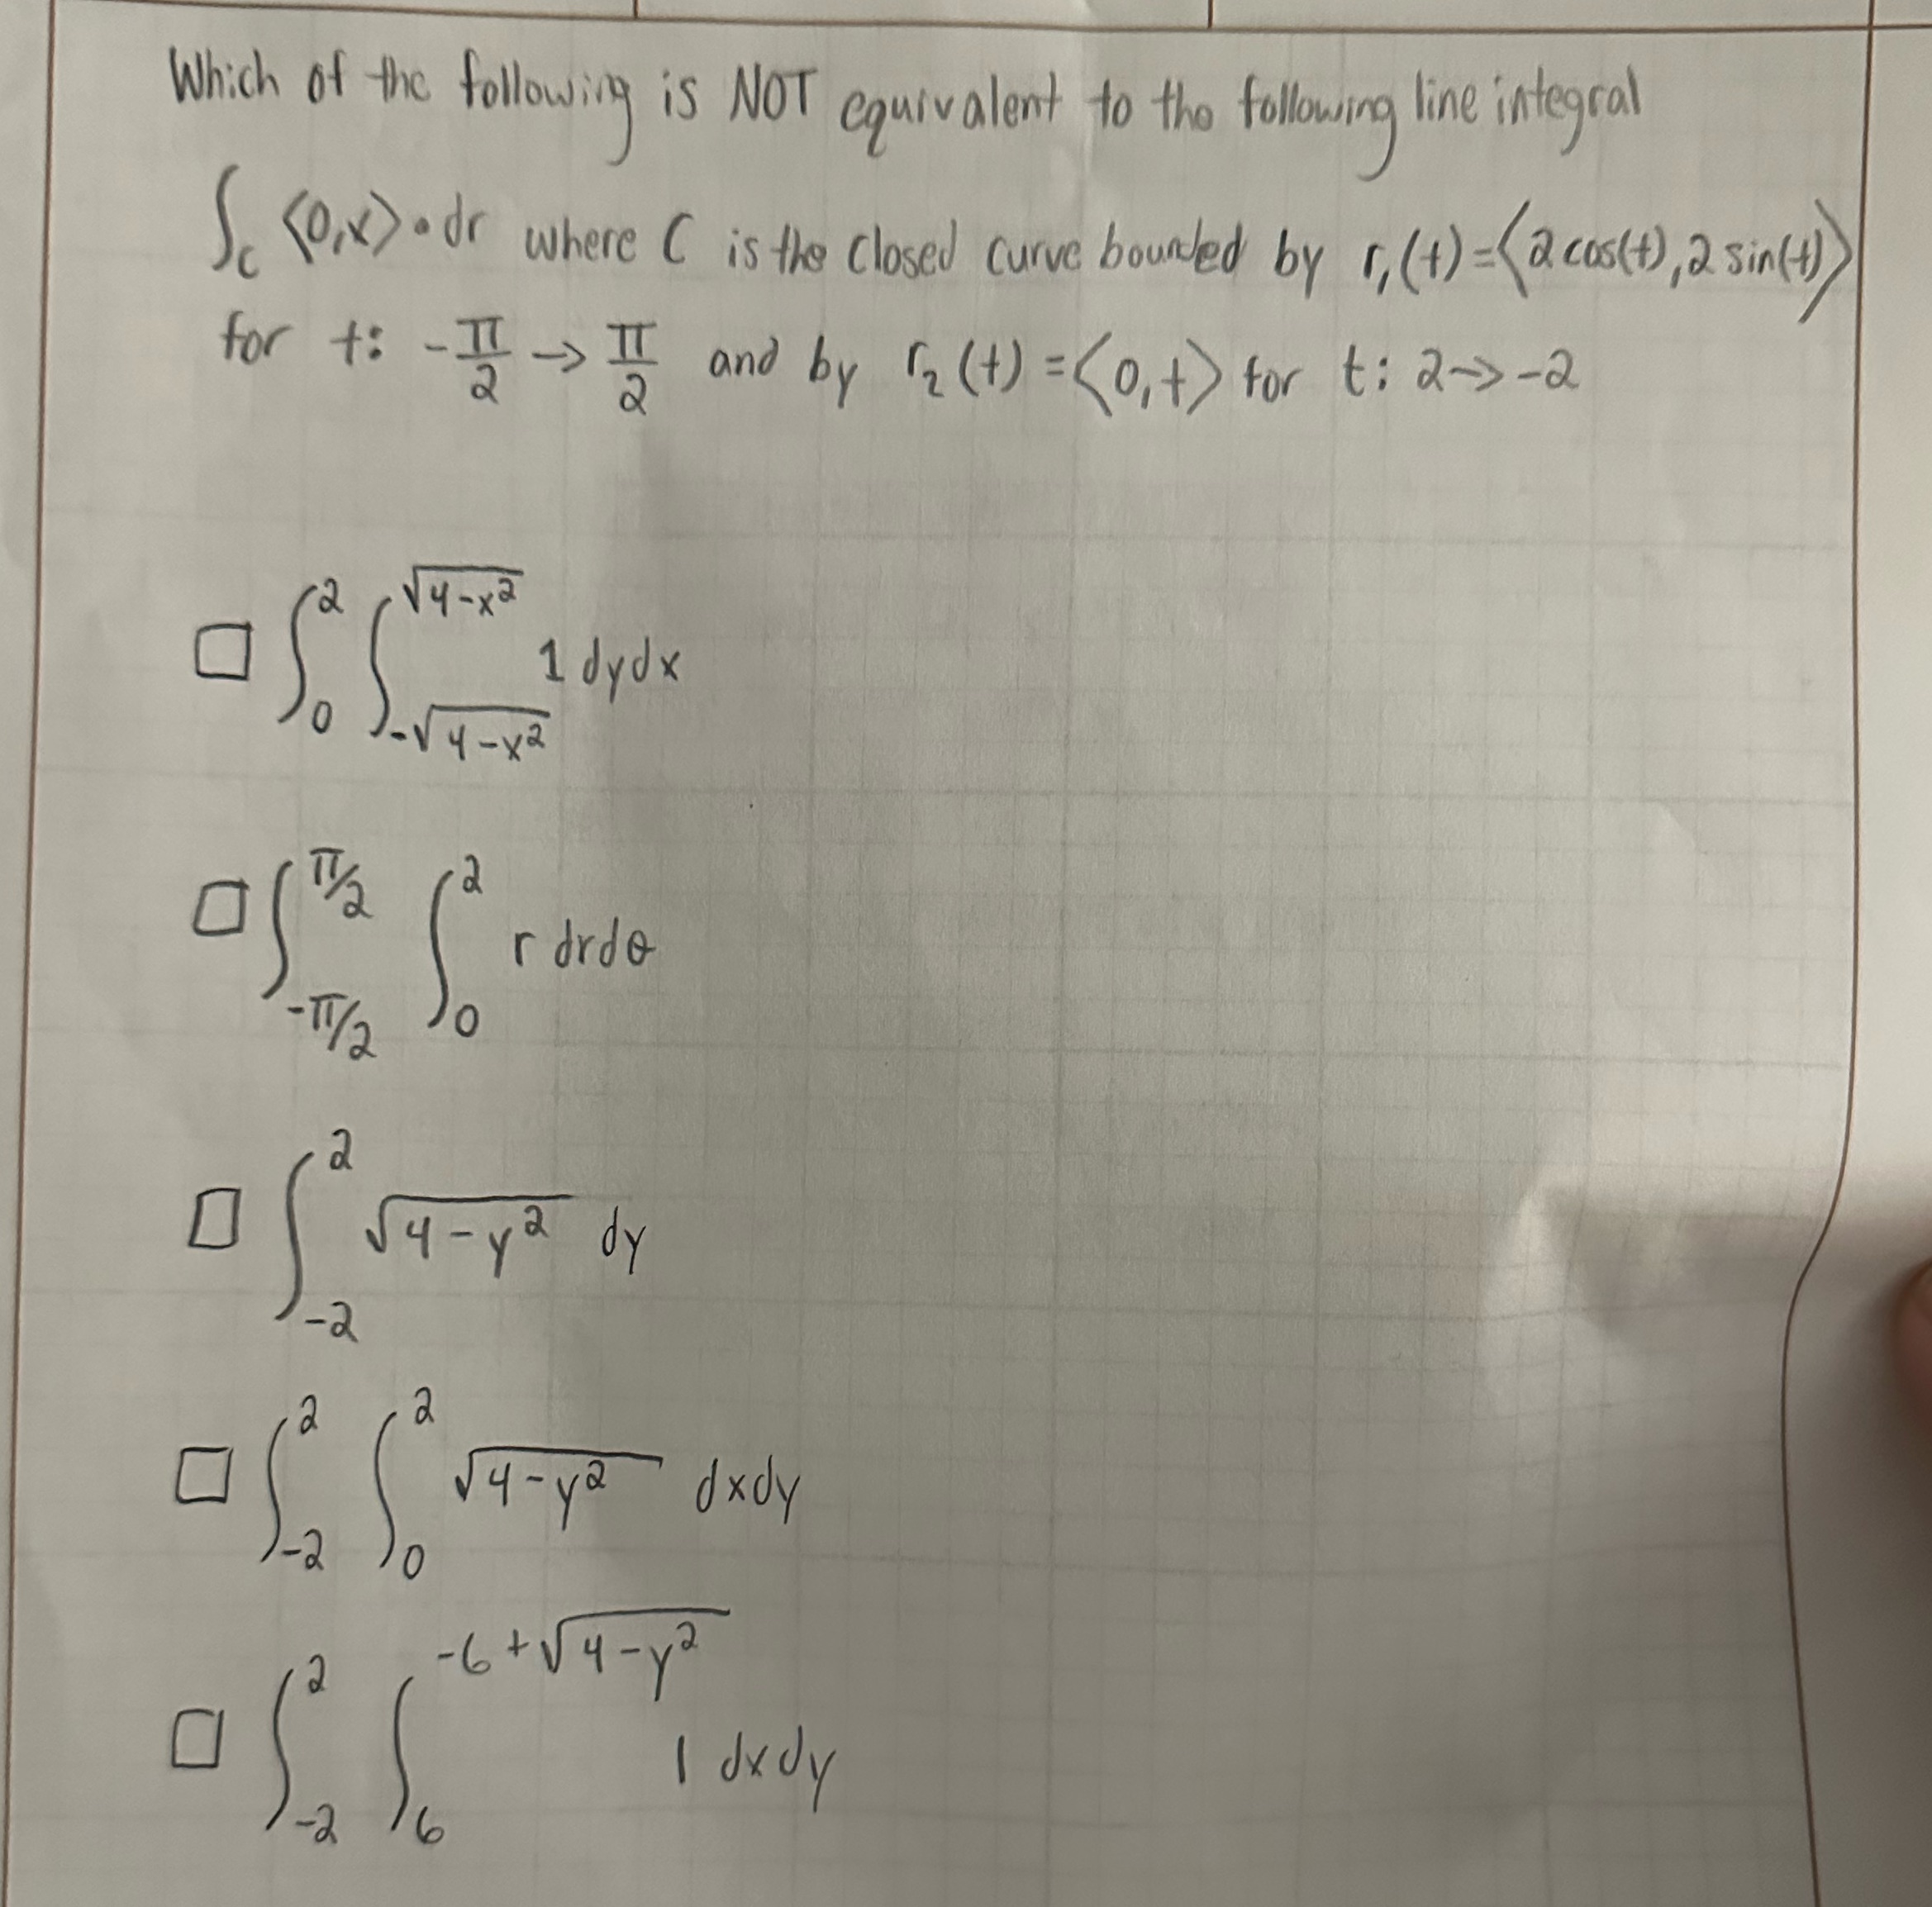 Which of the following is NOT equivalent to the following line integral
∫_C ⟨0,x⟩•dr where C is the closed curve bounded by r₁(t)=⟨2cos(t),2sin(t)⟩
for t: -π/2 → π/2 and by r₂(t)=⟨0,t⟩ for t: 2→-2
□ ∫_0^2 ∫_{-√(4-x²)}^{√(4-x²)} 1 dydx
□ ∫_{-π/2}^{π/2} ∫_0^2 r drdθ
□ ∫_{-2}^2 √(4-y²) dy
□ ∫_{-2}^2 ∫_0^2 √(4-y²) dxdy
□ ∫_{-2}^2 ∫_6^{-6+√(4-y²)} 1 dxdy